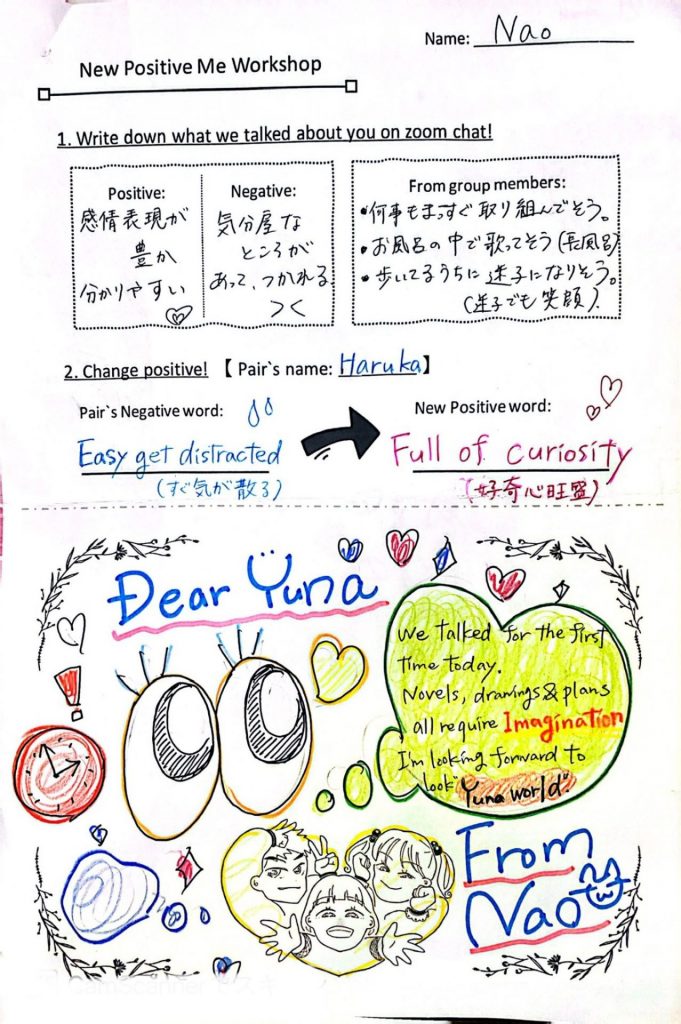 Name: Nao
New Positive Me Workshop
1. Write down what we talked about you on zoom chat!
Positive:
感情表現が
豊か
分かりやすい
Negative:
気分屋な
ところが
あって、つかれる
つく
From group members:
•何事もまっすぐ取り組んでそう。
•お風呂の中で歌ってそう(長風呂)
•歩いてるうちに迷子になりそう。
(迷子でも笑顔)
2. Change positive! 【 Pair`s name: Haruka】
Pair`s Negative word:
Easy get distracted
(すぐ気が散る)
New Positive word:
Full of curiosity
(好奇心旺盛)
Dear Yuna
We talked for the first
time today.
Novels, drawings & plans
all require Imagination
I'm looking forward to
look "Yuna world".
From
Nao
CamScanner